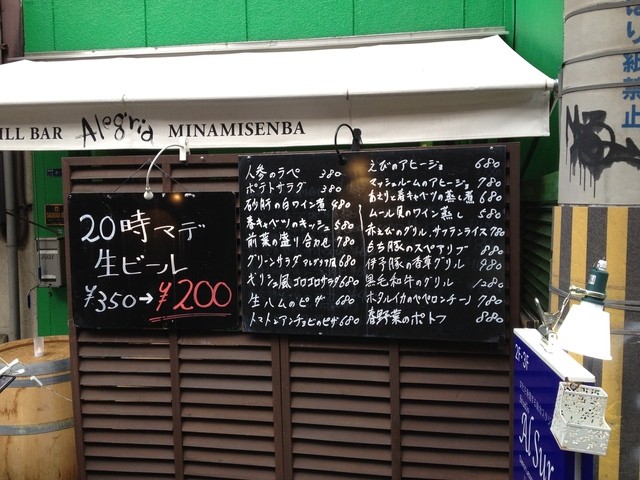 ILL BAR Alegria MINAMISENBA
20時マデ
生ビール
¥350→¥200
人参のラペ 380
ポテトサラダ 380
砂肝の白ワイン煮 480
春キャベツのキッシュ 580
前菜の盛り合わせ 780
グリーンサラダ 680
ギリシュ風ゴロゴロサラダ 680
生ハムのピザ 680
トマトとアンチョビのピザ 680
えびのアヒージョ 680
マッシュルームのアヒージョ 780
あさりと春キャベツの蒸し煮 680
ムール貝のワイン蒸し 580
赤えびのグリル, サフランライス 780
もち豚のスペアリブ 880
伊予豚の香草グリル 980
黒毛和牛のグリル 1280
ホタルイカのペペロンチーノ 780
春野菜のポトフ 880
はり紙禁止
2F・3F
Al Sur